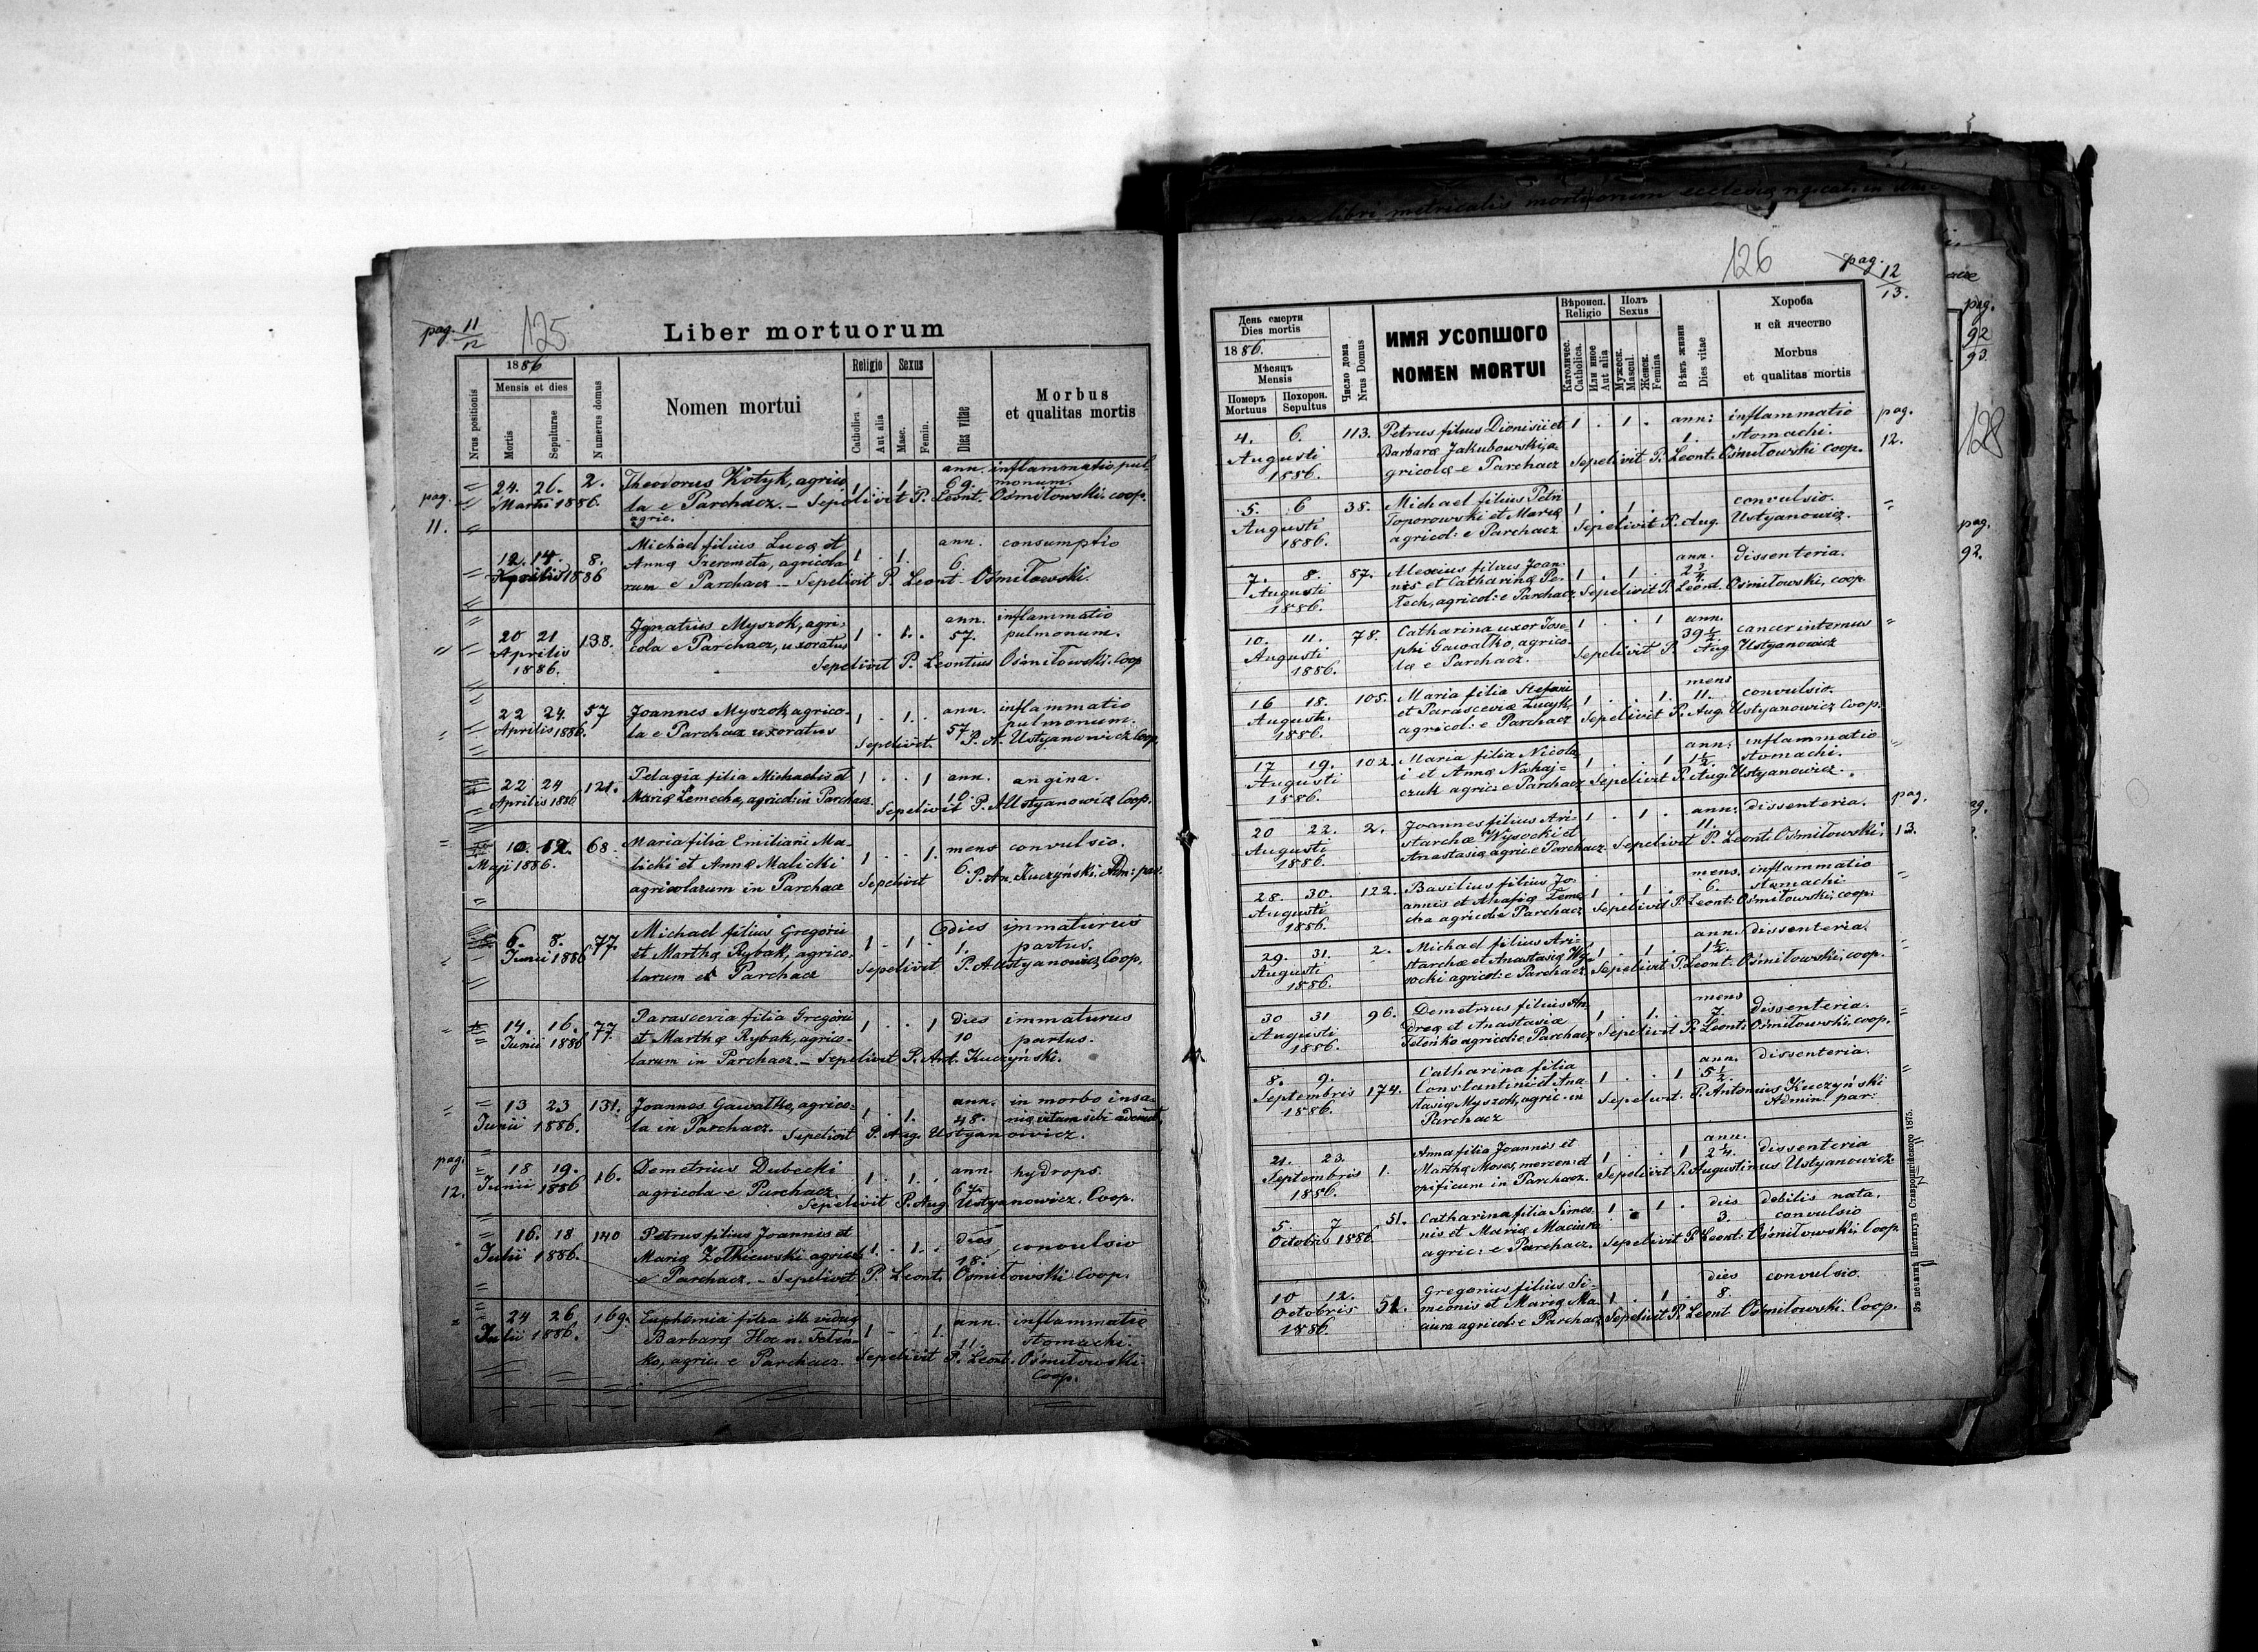 pag. 11/12
125
Liber mortuorum
Nrus. positionis
1886
Mensis et dies
Mortis
Sepulturae
Numerus domus
Nomen mortui
Religio
Catholica
Aut alia
Sexus
Masc.
Femin.
Dies vitae
Morbus
et qualitas mortis
pag. 11.
24. 26. 2. Theodorus Kotyk, agrico 1 . 1 . ann. 69. inflammatio pul
Martii 1886. la e Parchacz. — Sepelivit P. Leont. Ośmiłowski. coop. monum.
agric.
12. 14. 8. Michael filius Lucę et 1 . 1 . ann. 6. consumptio
Aprilis 1886 Annę Szeremeta, agricola
rum e Parchacz — Sepelivit P. Leont. Ośmiłowski.
20 21 138. Ignatius Myszok, agri- 1 . 1 . ann. 57. inflammatio
Aprilis cola e Parchacz, uxoratus pulmonum.
1886. Sepelivit P. Leontius Ośmiłowski. Coop
22 24. 57 Joannes Myszok, agrico- 1 . 1 . ann. 57 inflammatio
Aprilis 1886. la e Parchacz uxoratus pulmonum.
Sepelivit. P. A. Ustyanowicz Coop.
22 24 121. Pelagia filia Michaelis et 1 . . 1 ann. 10. angina.
Aprilis 1886 Marię Lemecha, agricol: in Parchacz.
Sepelivit P. A. Ustyanowicz Coop.
10. 12. 68. Maria filia Emiliani Ma- 1 . . 1. mens 6. convulsio.
Maji 1886. licki et Annę Malicki
agricolarum in Parchacz Sepelivit P. An. Kuczyński. Adm: par.
6. 8. 77. Michael filius Gregorii 1 . 1 . dies 1. immaturus
Junii 1886 et Marthę Rybak, agrico- partus.
larum e Parchacz Sepelivit P. A. Ustyanowicz, Coop.
14. 16. 77. Parascevia filia Gregorii 1 . . 1 dies 10 immaturus
Junii 1886 et Marthę Rybak, agrico- partus.
larum in Parchacz. — Sepelivit P. Ant. Kuczyński.
13 23 131. Joannes Gawałko, agrico- 1 . 1. ann. 48. in morbo insa-
Junii 1886. la in Parchacz. nię vitam sibi ademit.
Sepelivit P. Aug. Ustyanowicz.
pag. 12.
18 19. 16. Demetrius Dubecki 1. . 1. . ann. hydrops.
Junii 1886 agricola e Parchacz.
Sepelivit P. Aug. Ustyanowicz. Coop.
16. 18 140 Petrus filius Joannis et 1. . 1. . dies 18. convulsio
Julii 1886. Marię Żołkiewski agricol.
e Parchacz. — Sepelivit P. Leont. Ośmiłowski Coop.
24 26 169. Euphemia filia viduę 1 . . 1. ann. 11. inflammatio
Julii 1886. Barbarę stomachi.
ko, agric: e Parchacz Sepelivit P. Leont. Ośmiłowski
Coop.
126
pag. 12/13.
День смерти
Dies mortis
1886.
Мѣсяцъ
Mensis
Померъ
Mortuus
Похорон.
Sepultus
Число дома
Nrus Domus
ИМЯ УСОПШОГО
NOMEN MORTUI
Вѣроисп.
Religio
Католичес.
Catholica.
Или иное
Aut alia
Полъ
Sexus
Мужеск.
Mascul.
Женск.
Femina
Вѣкъ жизни
Dies vitae
Хороба
и ей ячество
Morbus
et qualitas mortis
4. 6. 113. Petrus filius Dionisii et 1 . 1 . ann: 1. inflammatio
Augusti Barbarę Jakubowski, a- stomachi.
1886. gricolę e Parchacz Sepelivit P. Leont. Ośmiłowski coop.
pag. 12.
5. 6 38. Michael filius Petri 1 . 1 . convulsio.
Augusti Toporowski et Marię
1886. agricol: e Parchacz Sepelivit P. Aug. Ustyanowicz.
7. 8. 87. Alexius filius Joan- 1 . 1 . ann. 2 3/4. dissenteria.
Augusti nis et Catharinę Pe-
1886. tech, agricol: e Parchacz. Sepelivit P. Leont. Ośmiłowski, coop.
10. 11. 78. Catharina uxor Jose- 1 . . 1 ann. 39 1/2. cancer internus
Augusti phi Gawałko, agrico-
1886. lę e Parchacz. Sepelivit P. Aug Ustyanowicz
16 18. 105. Maria filia Stefani 1 . . 1. mens 11. convulsio.
Augusti. et Parascevię Łucyk,
1886. agricol: e Parchacz Sepelivit P. Aug. Ustyanowicz Coop.
17 19. 102. Maria filia Nicola- 1 . . 1 ann. 1 1/2. inflammatio
Augusti i et Annę Nahaj- stomachi.
1886. czuk agric: e Parchacz Sepelivit P. Aug. Ustyanowicz.
20 22. 2. Joannes filius Ari- 1 . 1 . ann. 11. dissenteria.
Augusti starchę Wysocki et
1886. Anastasię agric. e Parchacz. Sepelivit P. Leont. Ośmiłowski,
pag. 13.
28. 30. 122. Basilius filius Jo- 1 . 1 . mens. 6. inflammatio
Augusti annis et Ahafię Leme- stomachi
1886. cha agricol: e Parchacz Sepelivit P. Leont: Ośmiłowski, coop:
29. 31. 2. Michael filius Ari- 1 . 1 . ann. 1 1/2. dissenteria.
Augusti starchę et Anastasię Wy-
1886. socki agricol: e Parchacz. Sepelivit P. Leont. Ośmiłowski, coop.
30 31 96. Demetrius filius An- 1 . 1. . mens 7. dissenteria.
Augusti dreę et Anastasię
1886. Feteńko agricol: e Parchacz Sepelivit P. Leont: Ośmiłowski, coop.
8. 9. 174. Catharina filia 1 . . 1 ann. 5 1/2. dissenteria.
Septembris Constantini et Ana
1886. stasię Myszok, agric. in Sepelivit. P. Antonius Kuczyński
Parchacz Admin: par:
21. 23. 1. Anna filia Joannis et 1 . . 1 ann. 2 1/4. dissenteria
Septembris Marthę Moses, mercen: et
1886. opificum in Parchacz. Sepelivit P. Augustinus Ustyanowicz
5. 7 51. Catharina filia Simeo- 1 . 1 . dies 3. debilis nata.
Octobris 1886 nis et Marię Maciura convulsio
agric: e Parchacz. Sepelivit P. Leont: Ośmiłowski. Coop.
10 12. 51. Gregorius filius Si- 1 . 1 . dies 8. convulsio.
Octobris meonis et Marię Ma-
1886. ciura agricol: e Parchacz Sepelivit P. Leont Ośmiłowski. Coop.
Зъ печатнѣ Института Ставропигійского 1875.
pag.
92
93.
128
pag.
92.